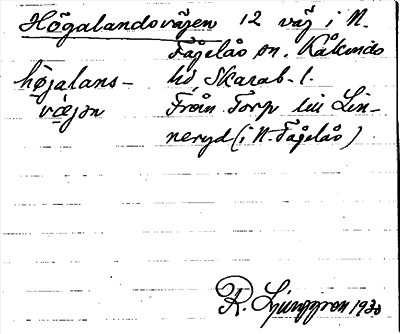 Högalandsvägen 12 väg i N.
Fågelås sn. Kåkinds
högalans- hd Skarab. l.
vägən Från Torp till Lin-
neryd (i N. Fågelås)
R. Ljunggren 1930